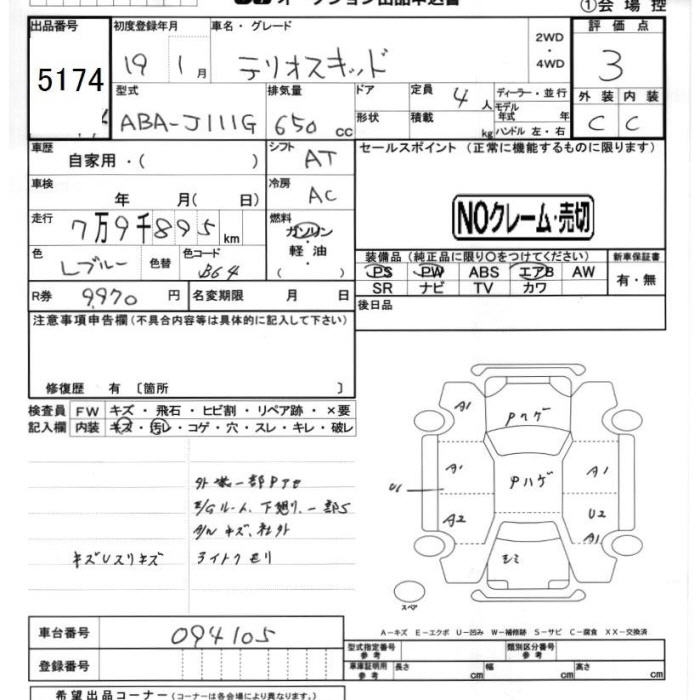 オークション出品申込書
①会場控
出品番号 初度登録年月 車名・グレード 評価点
5174 19 1月 テリオスキッド 2WD・4WD 3
型式 排気量 ドア 定員 4人 ディーラー・並行 外装 内装
モデル年式 年
ABA-J111G 650cc 形状 積載 kg ハンドル 左・右 C C
車歴 シフト セールスポイント (正常に機能するものに限ります)
自家用・( ) AT
車検 冷房
年 月( 日) AC
NOクレーム・売切
走行 燃料
7万9千895km ガソリン・軽油( )
色 Lブルー 色替 色コード B64
装備品 (純正品に限り○をつけてください) 新車保証書
PS PW ABS エアB AW 有・無
SR ナビ TV カワ
R券 9,970円 名変期限 月 日
後日品
注意事項申告欄(不具合内容等は具体的に記入して下さい)
修復歴 有 〔箇所 〕
検査員 FW キズ・飛石・ヒビ割・リペア跡・×要
記入欄 内装 キズ・汚レ・コゲ・穴・スレ・キレ・破レ
外装一部Pアセ
E/Gルーム、下廻り、一部S
A/Wキズ、社外
キズUスリキズ
A1 Pハゲ
A1 Pハゲ A1
U1
A2 U2
A1
スペア
A-キズ E-エクボ U-凹み W-補修跡 S-サビ C-腐食 XX-交換済
車台番号 094105
型式指定番号 参考 類別区分番号 参考
登録番号
車庫証明用 参考 長さ cm 幅 cm 高さ cm
希望出品コーナー(コーナーは会場により異なります。)